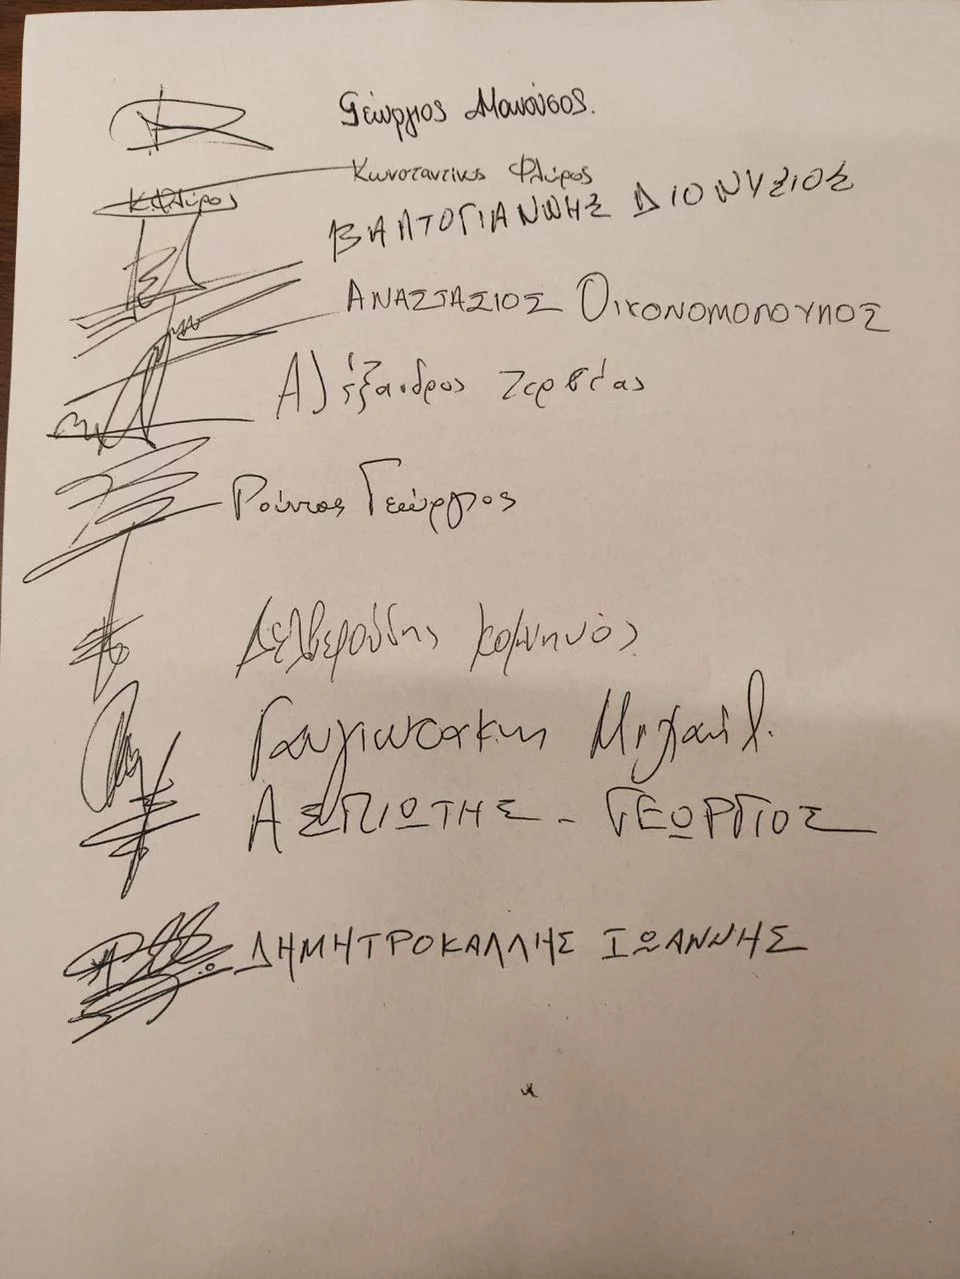 Γεώργιος Μανούσος.
Κωνσταντίνος Φλύρος
Κ Φλύρος
ΒΑΛΤΟΓΙΑΝΝΗΣ ΔΙΟΝΥΣΙΟΣ
ΑΝΑΣΤΑΣΙΟΣ ΟΙΚΟΝΟΜΟΠΟΥΛΟΣ
Αλέξανδρος
Ρούντος Γεώργιος
Δελβερούδης Κομνηνός
Γαυγιωτάκης Μιχαήλ.
ΑΣΠΙΩΤΗΣ - ΓΕΩΡΓΙΟΣ
ΔΗΜΗΤΡΟΚΑΛΛΗΣ ΙΩΑΝΝΗΣ